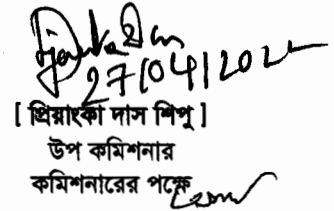 27/04/2022
[ প্রিয়াংকা দাস শিপু ]
উপ কমিশনার
কমিশনারের পক্ষে